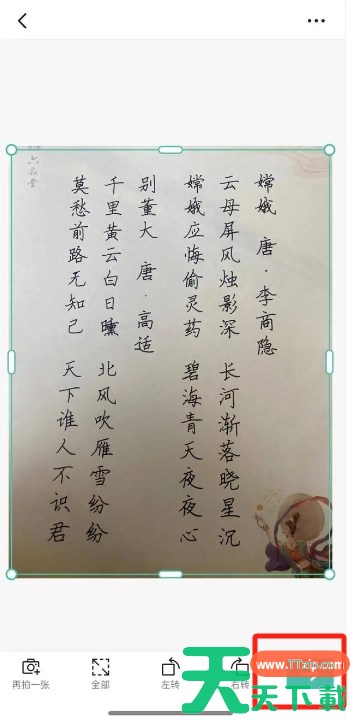 六品堂
嫦娥 唐·李商隐
云母屏风烛影深 长河渐落晓星沉
嫦娥应悔偷灵药 碧海青天夜夜心
别董大 唐·高适
千里黄云白日曛 北风吹雁雪纷纷
莫愁前路无知己 天下谁人不识君
再拍一张
全部
左转
右转
www.TTzip.com
天天下載